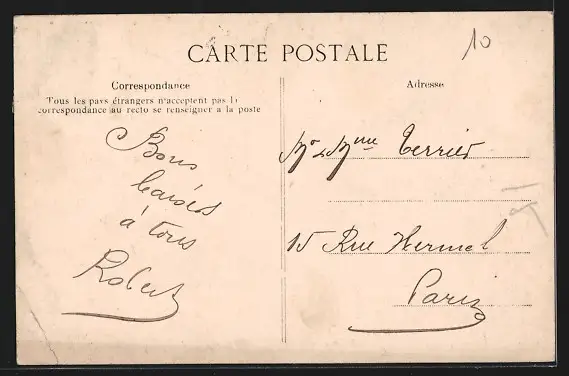 10
CARTE POSTALE
Correspondance
Tous les pays étrangers n'acceptent pas la
correspondance au recto se renseigner a la poste
Adresse
Bons
baisers
à tous
Robert
Mr & Mme Terrier
15 Rue Hermel
Paris